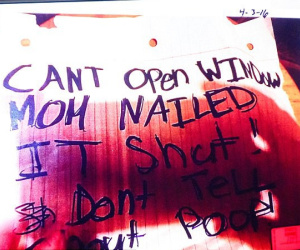 4-3-16
CANT Open WINDOW
MOM NAILED
IT Shut!
Dont Tell
POOP